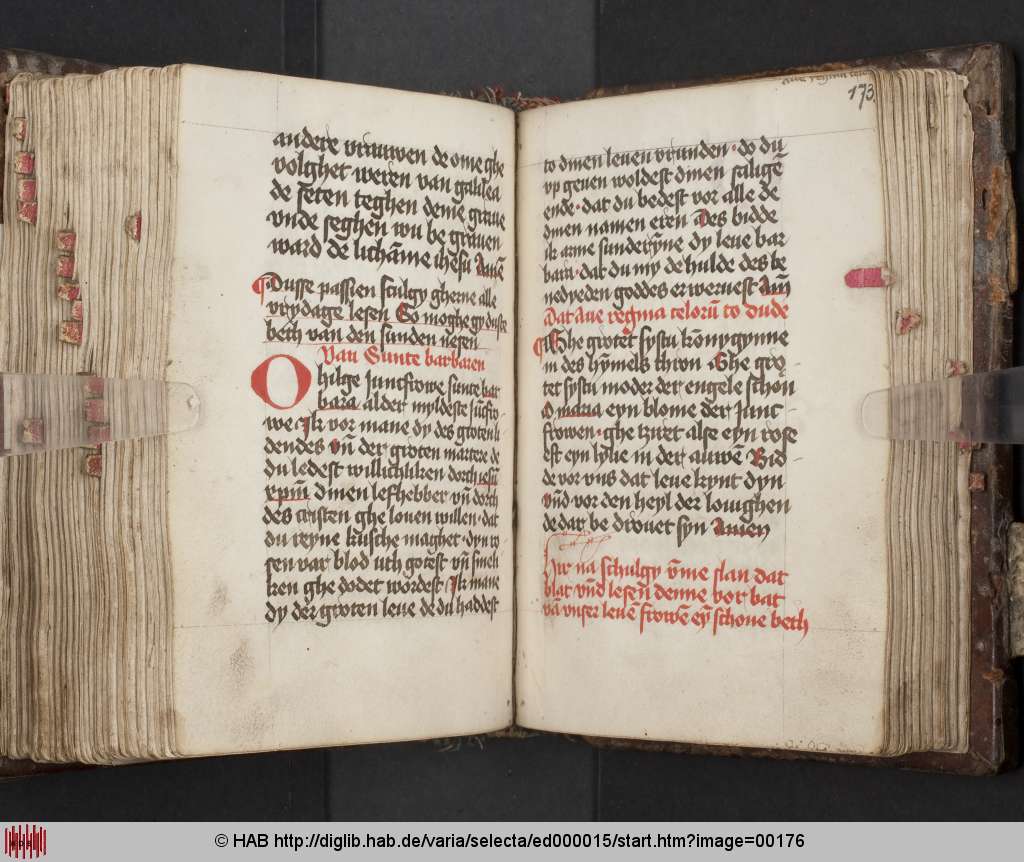 andere vrauwen de ome ghe
volghet weren van galilea
de seten teghen deme graue
vnde seghen wu be grauen
ward de lichāme ihesu Amē
Dusse passien sculgy gherne alle
vrydage lesen So moghe gy dusse
beth van den sunden nesen
Van Sunte barbaren
O hilge Juncfrowe sunte bar
bara alder myldeste Jūcfro
we Ik vor mane dy des groten li
dendes vn̄ der groten martere de
du ledest willichliken dorch ihesū
xpm̄ dinen lefhebber vn̄ dorch
des cristen ghe louen willen· dat
du reyne kusche maghet· dyn ro
sen var blod uth gotest vn̄ smeli
ken ghe dodet wordest Ik mane
dy der groten leue de du haddest
173
to dinen leuen vrunden· do du
vp geuen woldest dinen saligē
ende· dat du bedest vor alle de
dinen namen eren Des bidde
ik arme sunderyne dy leue bar
bara· dat du my de hulde des be
nedyeden goddes erweruest Am̄
Dat Aue regina celorū to dude
Ghe grotet systu kōnygynne
in des hȳmels thron Ghe gro
tet systu moder der engele schon
O maria eyn blome der Junc
frowen· ghe tziret alse eyn rose
est eyn lylie in der auwe Bid
de vor vns dat leue kynt dyn
vn̄d vor den heyl der louighen
de dar be drouet syn Amen
Hir na schulgy v̄me slan dat
blat vn̄d lesen denne vor bat
vā vnser leuē frowē eȳ schone beth
© HAB http://diglib.hab.de/varia/selecta/ed000015/start.htm?image=00176